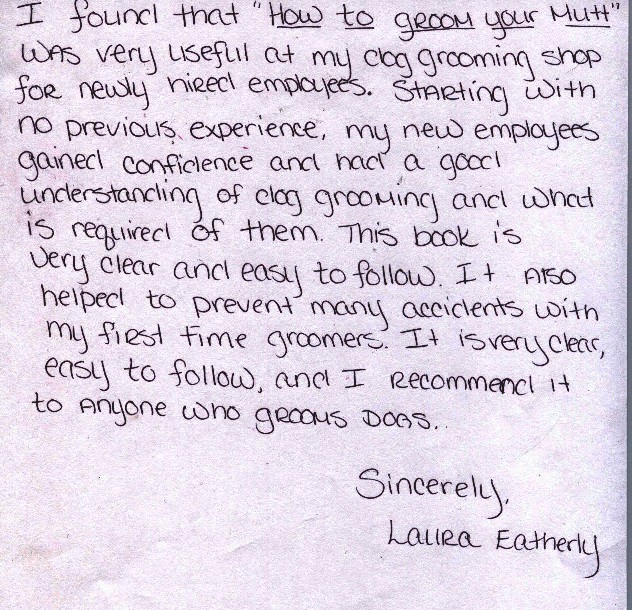 I found that "How to groom your Mutt"
was very useful at my dog grooming shop
for newly hired employees. Starting with
no previous experience, my new employees
gained confidence and had a good
understanding of dog grooming and what
is required of them. This book is
very clear and easy to follow. It Also
helped to prevent many accidents with
my first time groomers. It is very clear,
easy to follow, and I Recommend it
to Anyone who grooms Dogs..
Sincerely,
Laura Eatherly